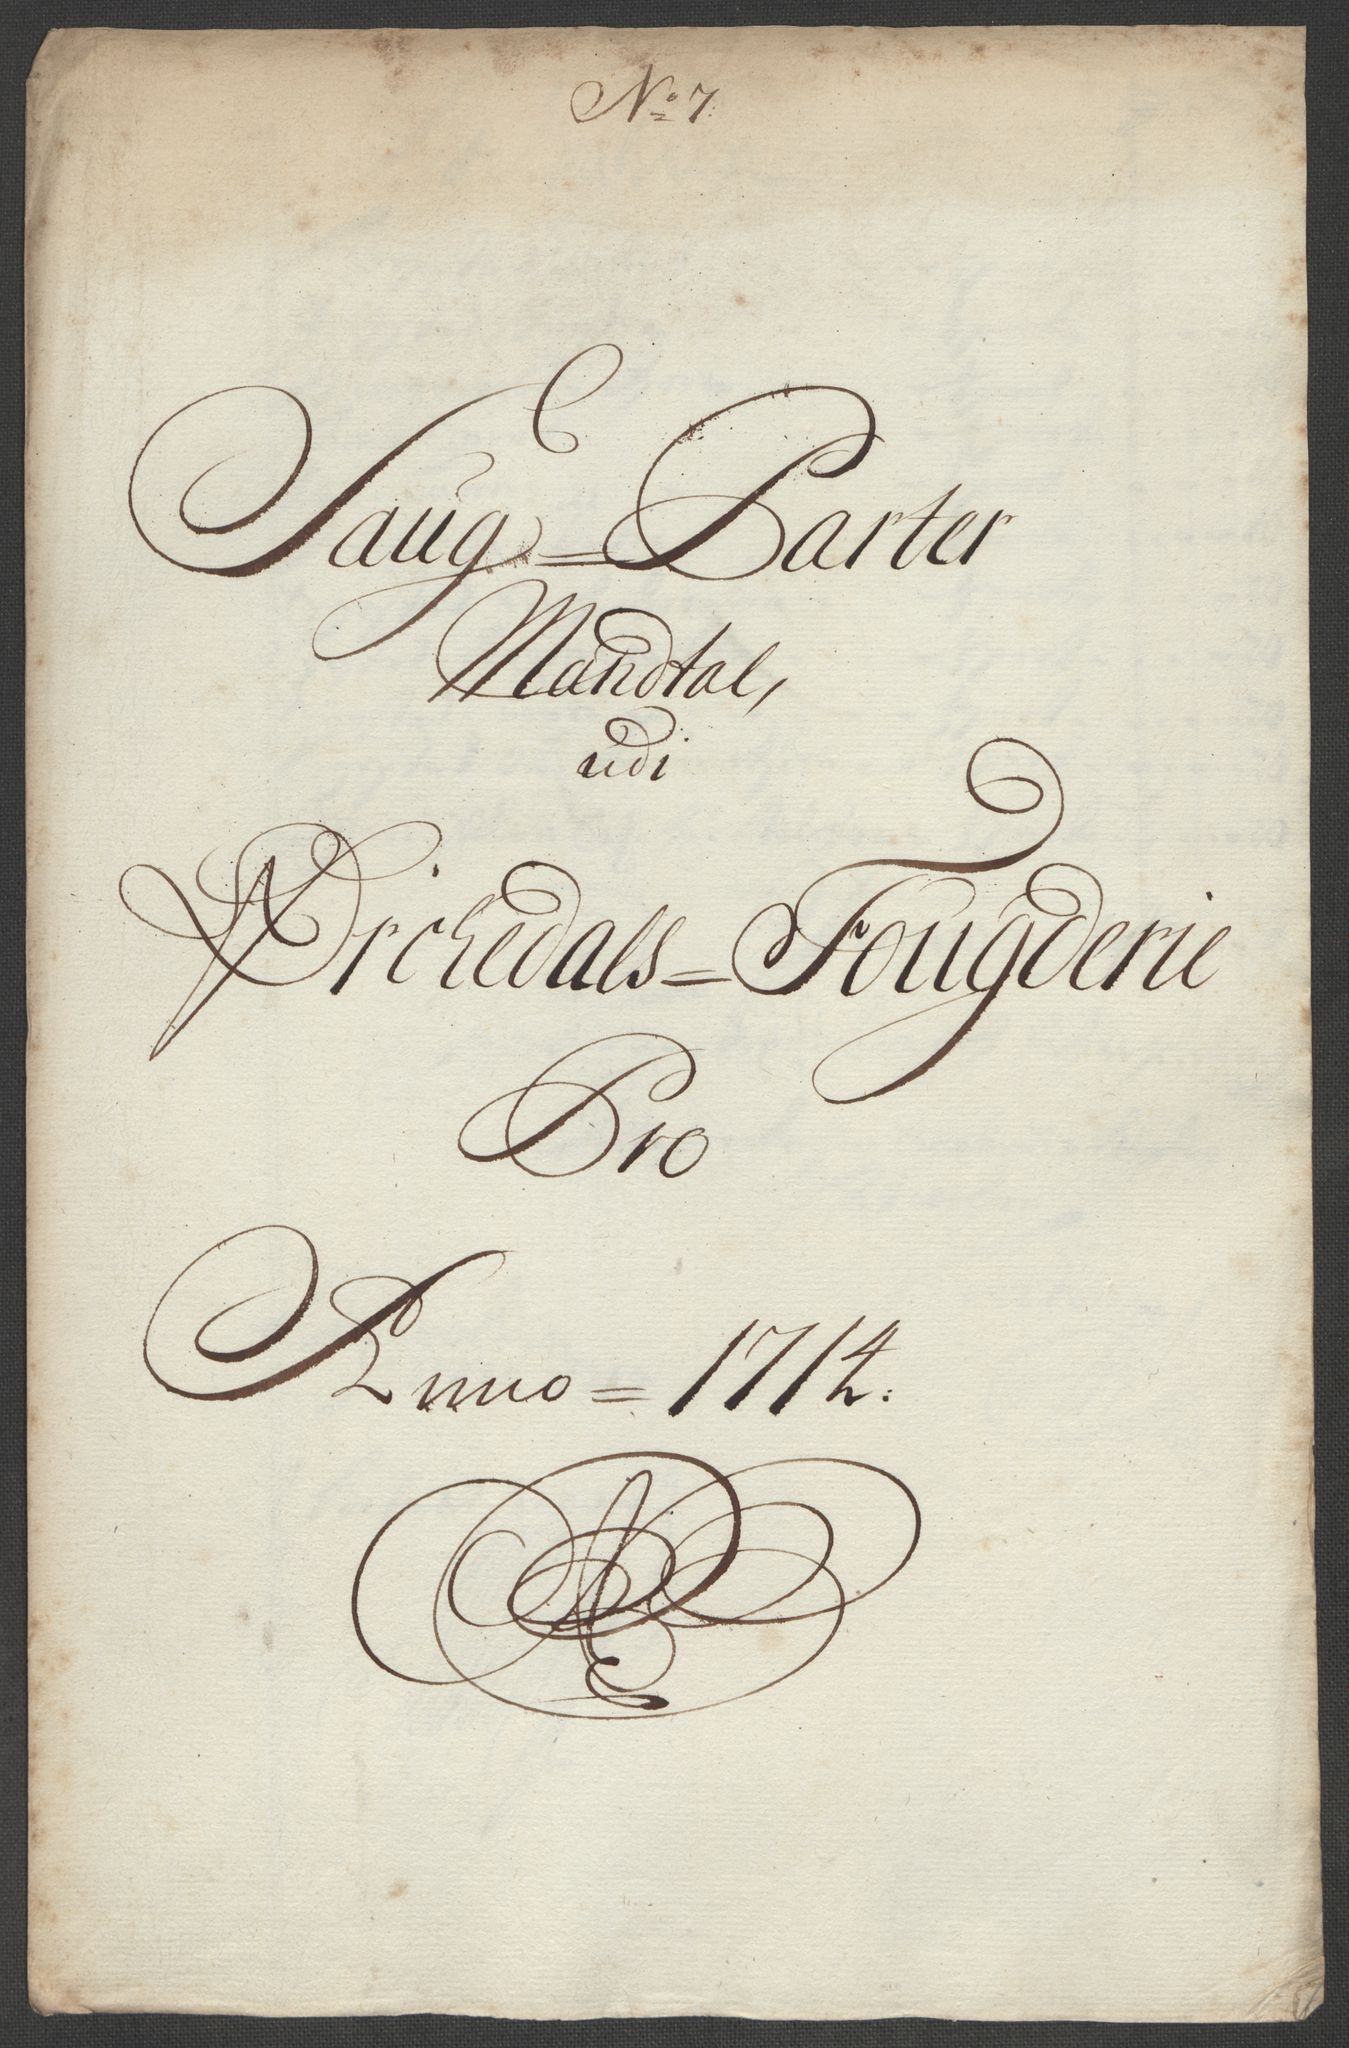 No 7.
Saug = Parter
Mandtal,
udi
Orchedals = Fougderie
Pro
Anno = 1714.